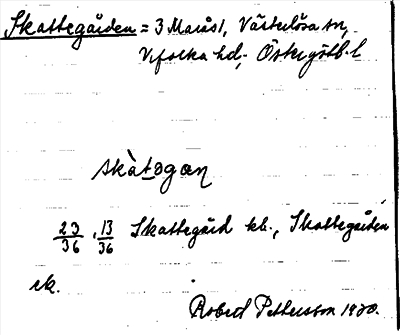 Skattegården = 3 Marås 1, Västerlösa sn,
Vifolka hd, Östergötl. l
skàtogæn
23/36, 13/36 Skattegård kb., Skattegården
ek.
Robert Pettersson 1930.